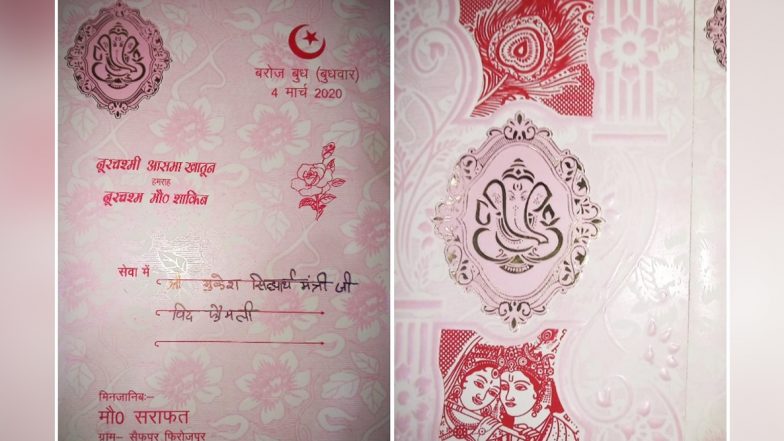 बरोज बुध (बुधवार)
4 मार्च 2020
नूरचश्मी आसमा खातून
हमराह
नूरचश्म मौ० शाकिब
सेवा में श्री मुकेश सिद्धार्थ मंत्री जी
विद फैमली
मिनजानिब:–
मौ० सराफत
ग्राम– सैफपुर फिरोजपुर